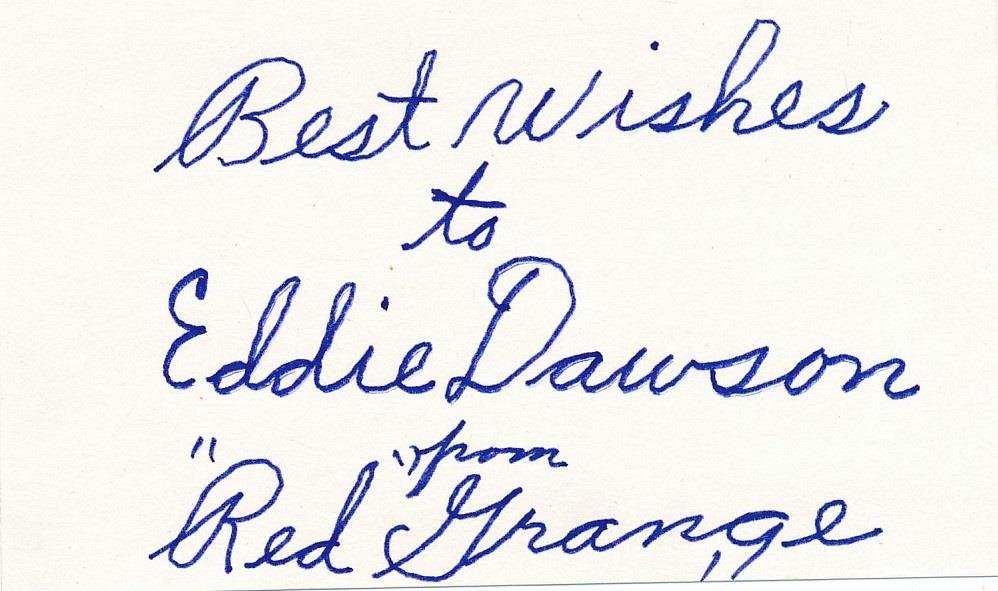 Best Wishes
to
Eddie Dawson
from
"Red" Grange